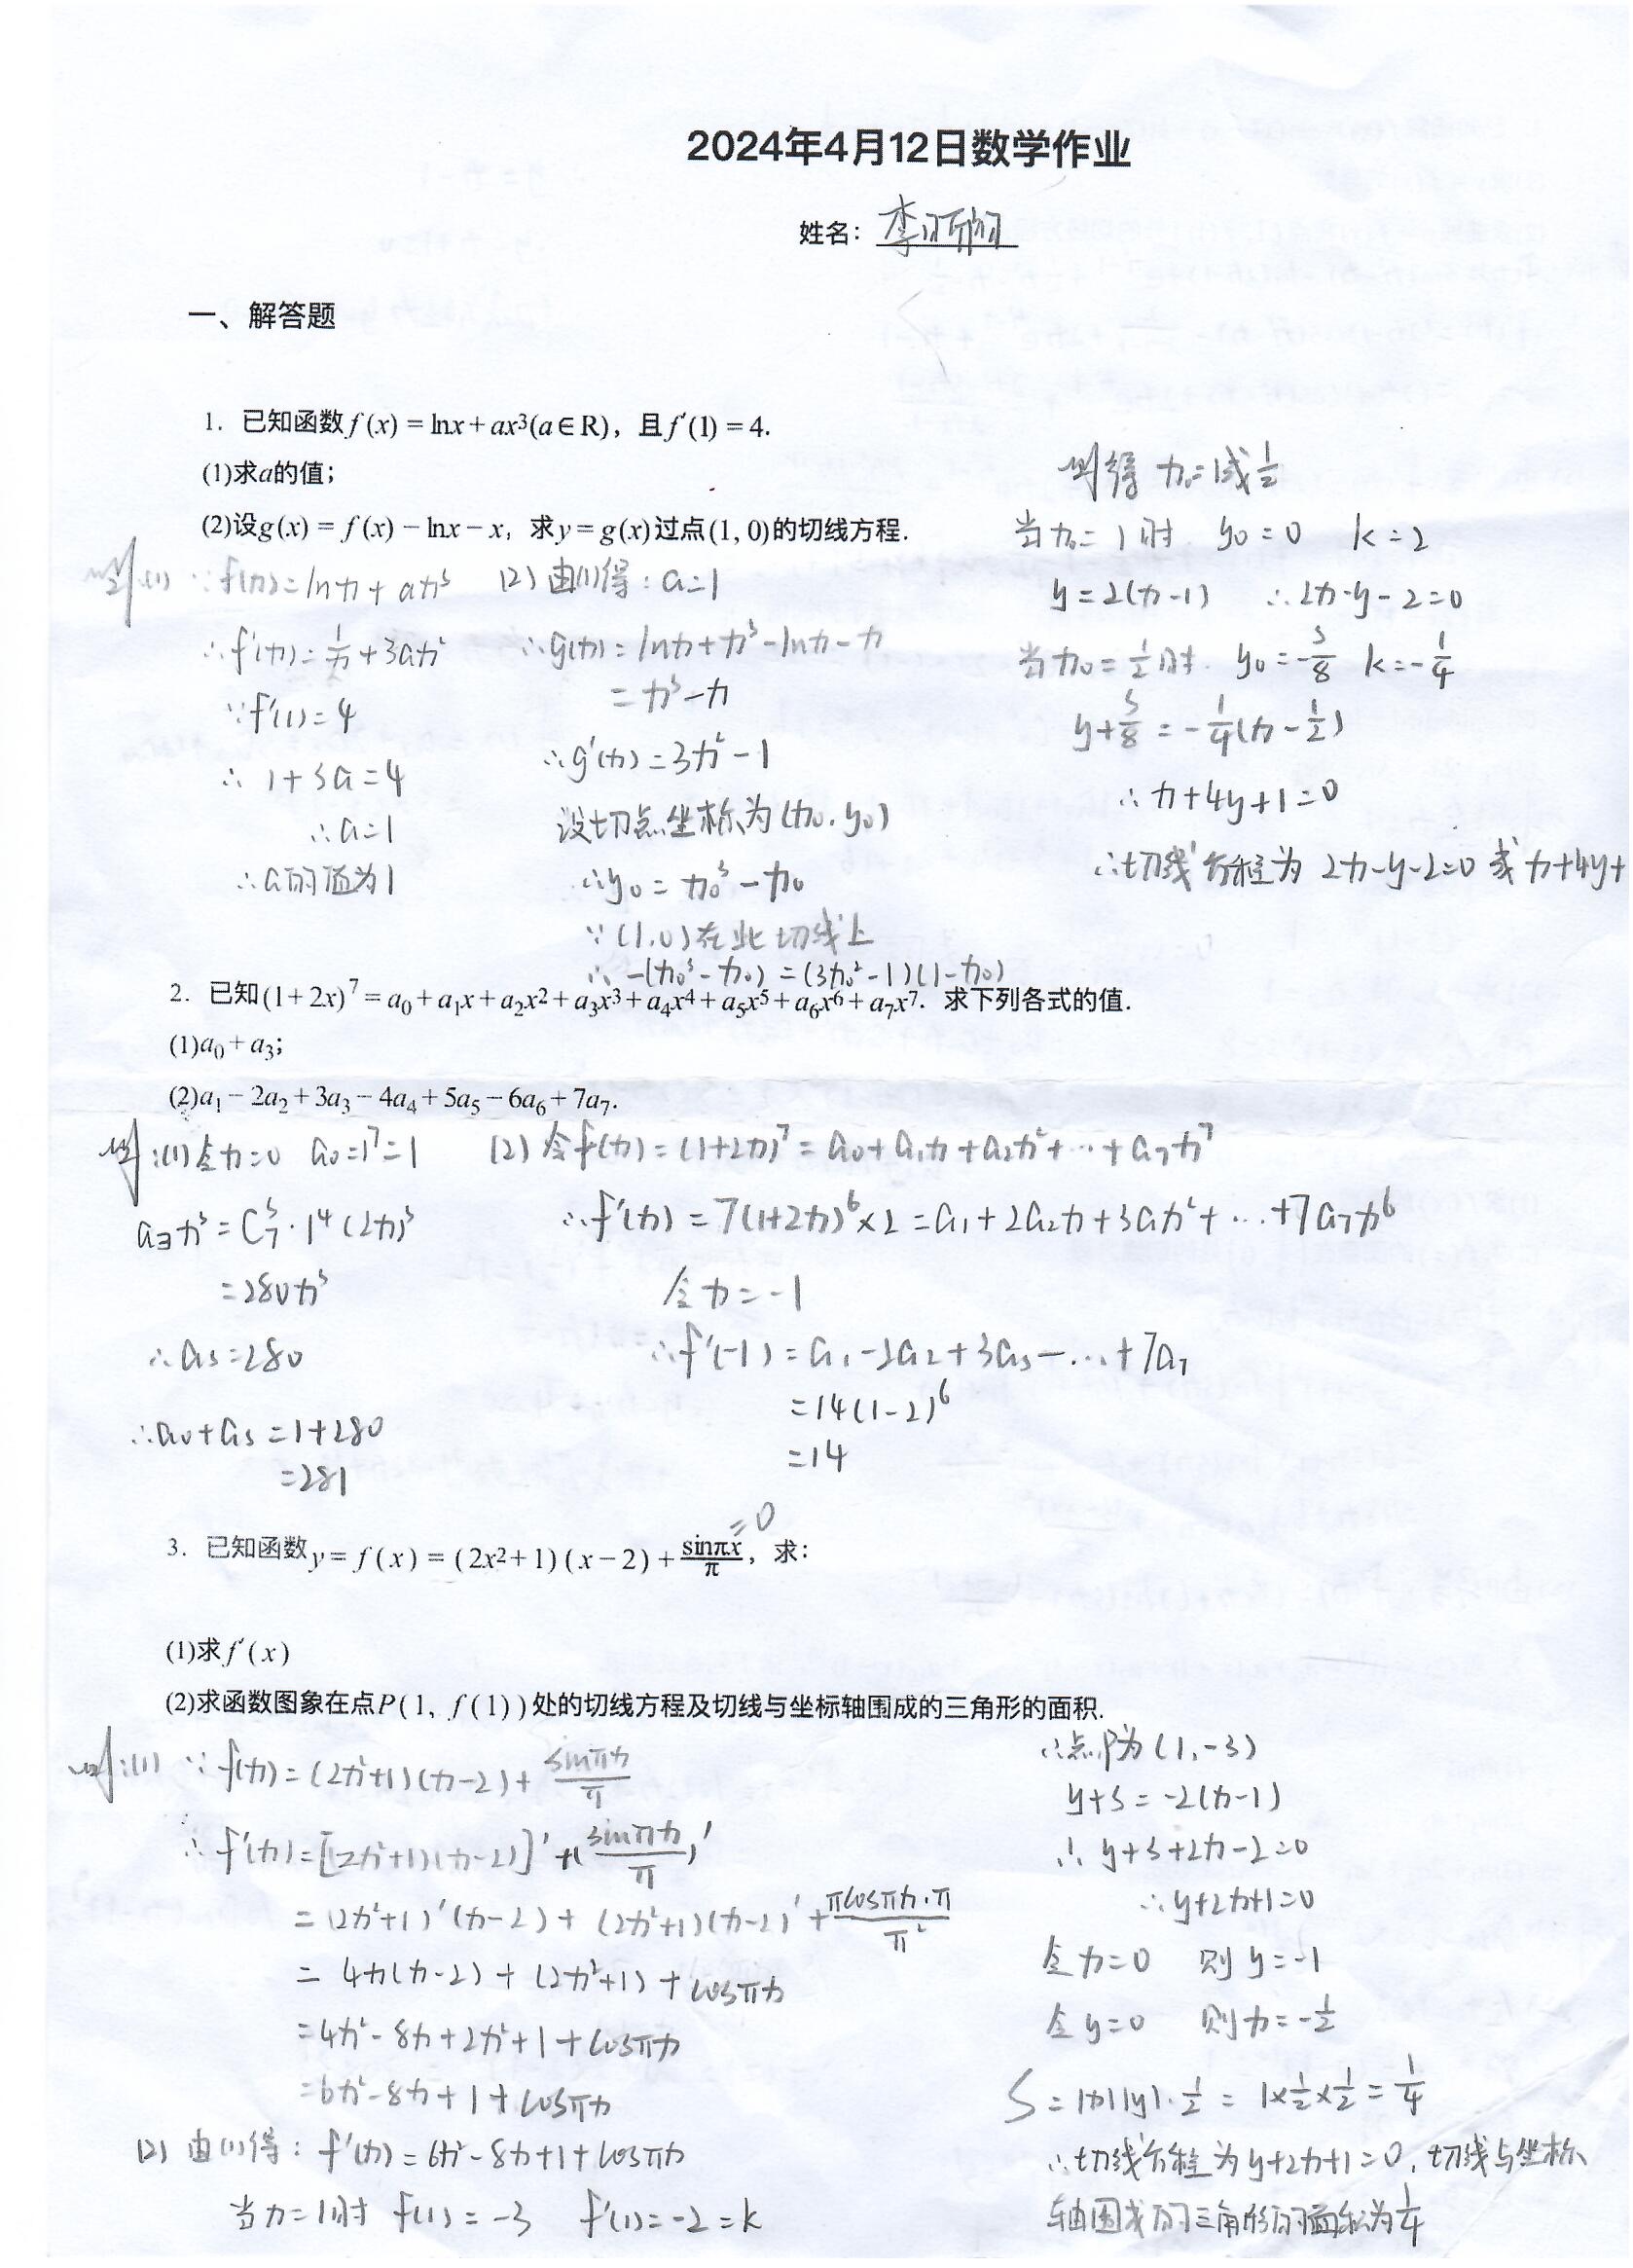 2024年4月12日数学作业
姓名：
一、解答题
1. 已知函数f(x)=lnx+ax³(a∈R)，且f′(1)=4.
(1)求a的值；
(2)设g(x)=f(x)-lnx-x，求y=g(x)过点(1,0)的切线方程.
解:(1) ∵f(x)=lnx+ax³
∴f′(x)=1/x+3ax²
∵f′(1)=4
∴1+3a=4
∴a=1
∴a的值为1
(2)由(1)得：a=1
∴g(x)=lnx+x³-lnx-x
=x³-x
∴g′(x)=3x²-1
设切点坐标为(x₀.y₀)
∴y₀=x₀³-x₀
∵(1.0)在此切线上
∴-(x₀³-x₀)=(3x₀²-1)(1-x₀)
解得 x₀=1或1/2
当x₀=1时. y₀=0 k=2
y=2(x-1) ∴2x-y-2=0
当x₀=1/2时. y₀=-3/8 k=-1/4
y+3/8=-1/4(x-1/2)
∴x+4y+1=0
∴切线方程为 2x-y-2=0 或 x+4y+
2. 已知(1+2x)⁷=a₀+a₁x+a₂x²+a₃x³+a₄x⁴+a₅x⁵+a₆x⁶+a₇x⁷. 求下列各式的值.
(1)a₀+a₃；
(2)a₁-2a₂+3a₃-4a₄+5a₅-6a₆+7a₇.
解:(1)令x=0 a₀=1⁷=1
a₃x³=C₇³·1⁴(2x)³
=280x³
∴a₃=280
∴a₀+a₃=1+280
=281
(2)令f(x)=(1+2x)⁷=a₀+a₁x+a₂x²+…+a₇x⁷
∴f′(x)=7(1+2x)⁶×2=a₁+2a₂x+3ax²+…+7a₇x⁶
令x=-1
∴f′(-1)=a₁-2a₂+3a₃-…+7a₇
=14(1-2)⁶
=14
=0
3. 已知函数y=f(x)=(2x²+1)(x-2)+sinπx/π，求：
(1)求f′(x)
(2)求函数图象在点P(1, f(1))处的切线方程及切线与坐标轴围成的三角形的面积.
解:(1) ∵f(x)=(2x²+1)(x-2)+sinπx/π
∴f′(x)=[(2x²+1)(x-2)]′+(sinπx/π)′
=(2x²+1)′(x-2)+(2x²+1)(x-2)′+πcosπx·π/π²
=4x(x-2)+(2x²+1)+cosπx
=4x²-8x+2x²+1+cosπx
=6x²-8x+1+cosπx
(2)由(1)得：f′(x)=6x²-8x+1+cosπx
当x=1时 f(1)=-3 f′(1)=-2=k
∴点P为(1,-3)
y+3=-2(x-1)
∴y+3+2x-2=0
∴y+2x+1=0
令x=0 则y=-1
令y=0 则x=-1/2
S=|x||y|·1/2=1×1/2×1/2=1/4
∴切线方程为y+2x+1=0,切线与坐标
轴围成的三角形的面积为1/4